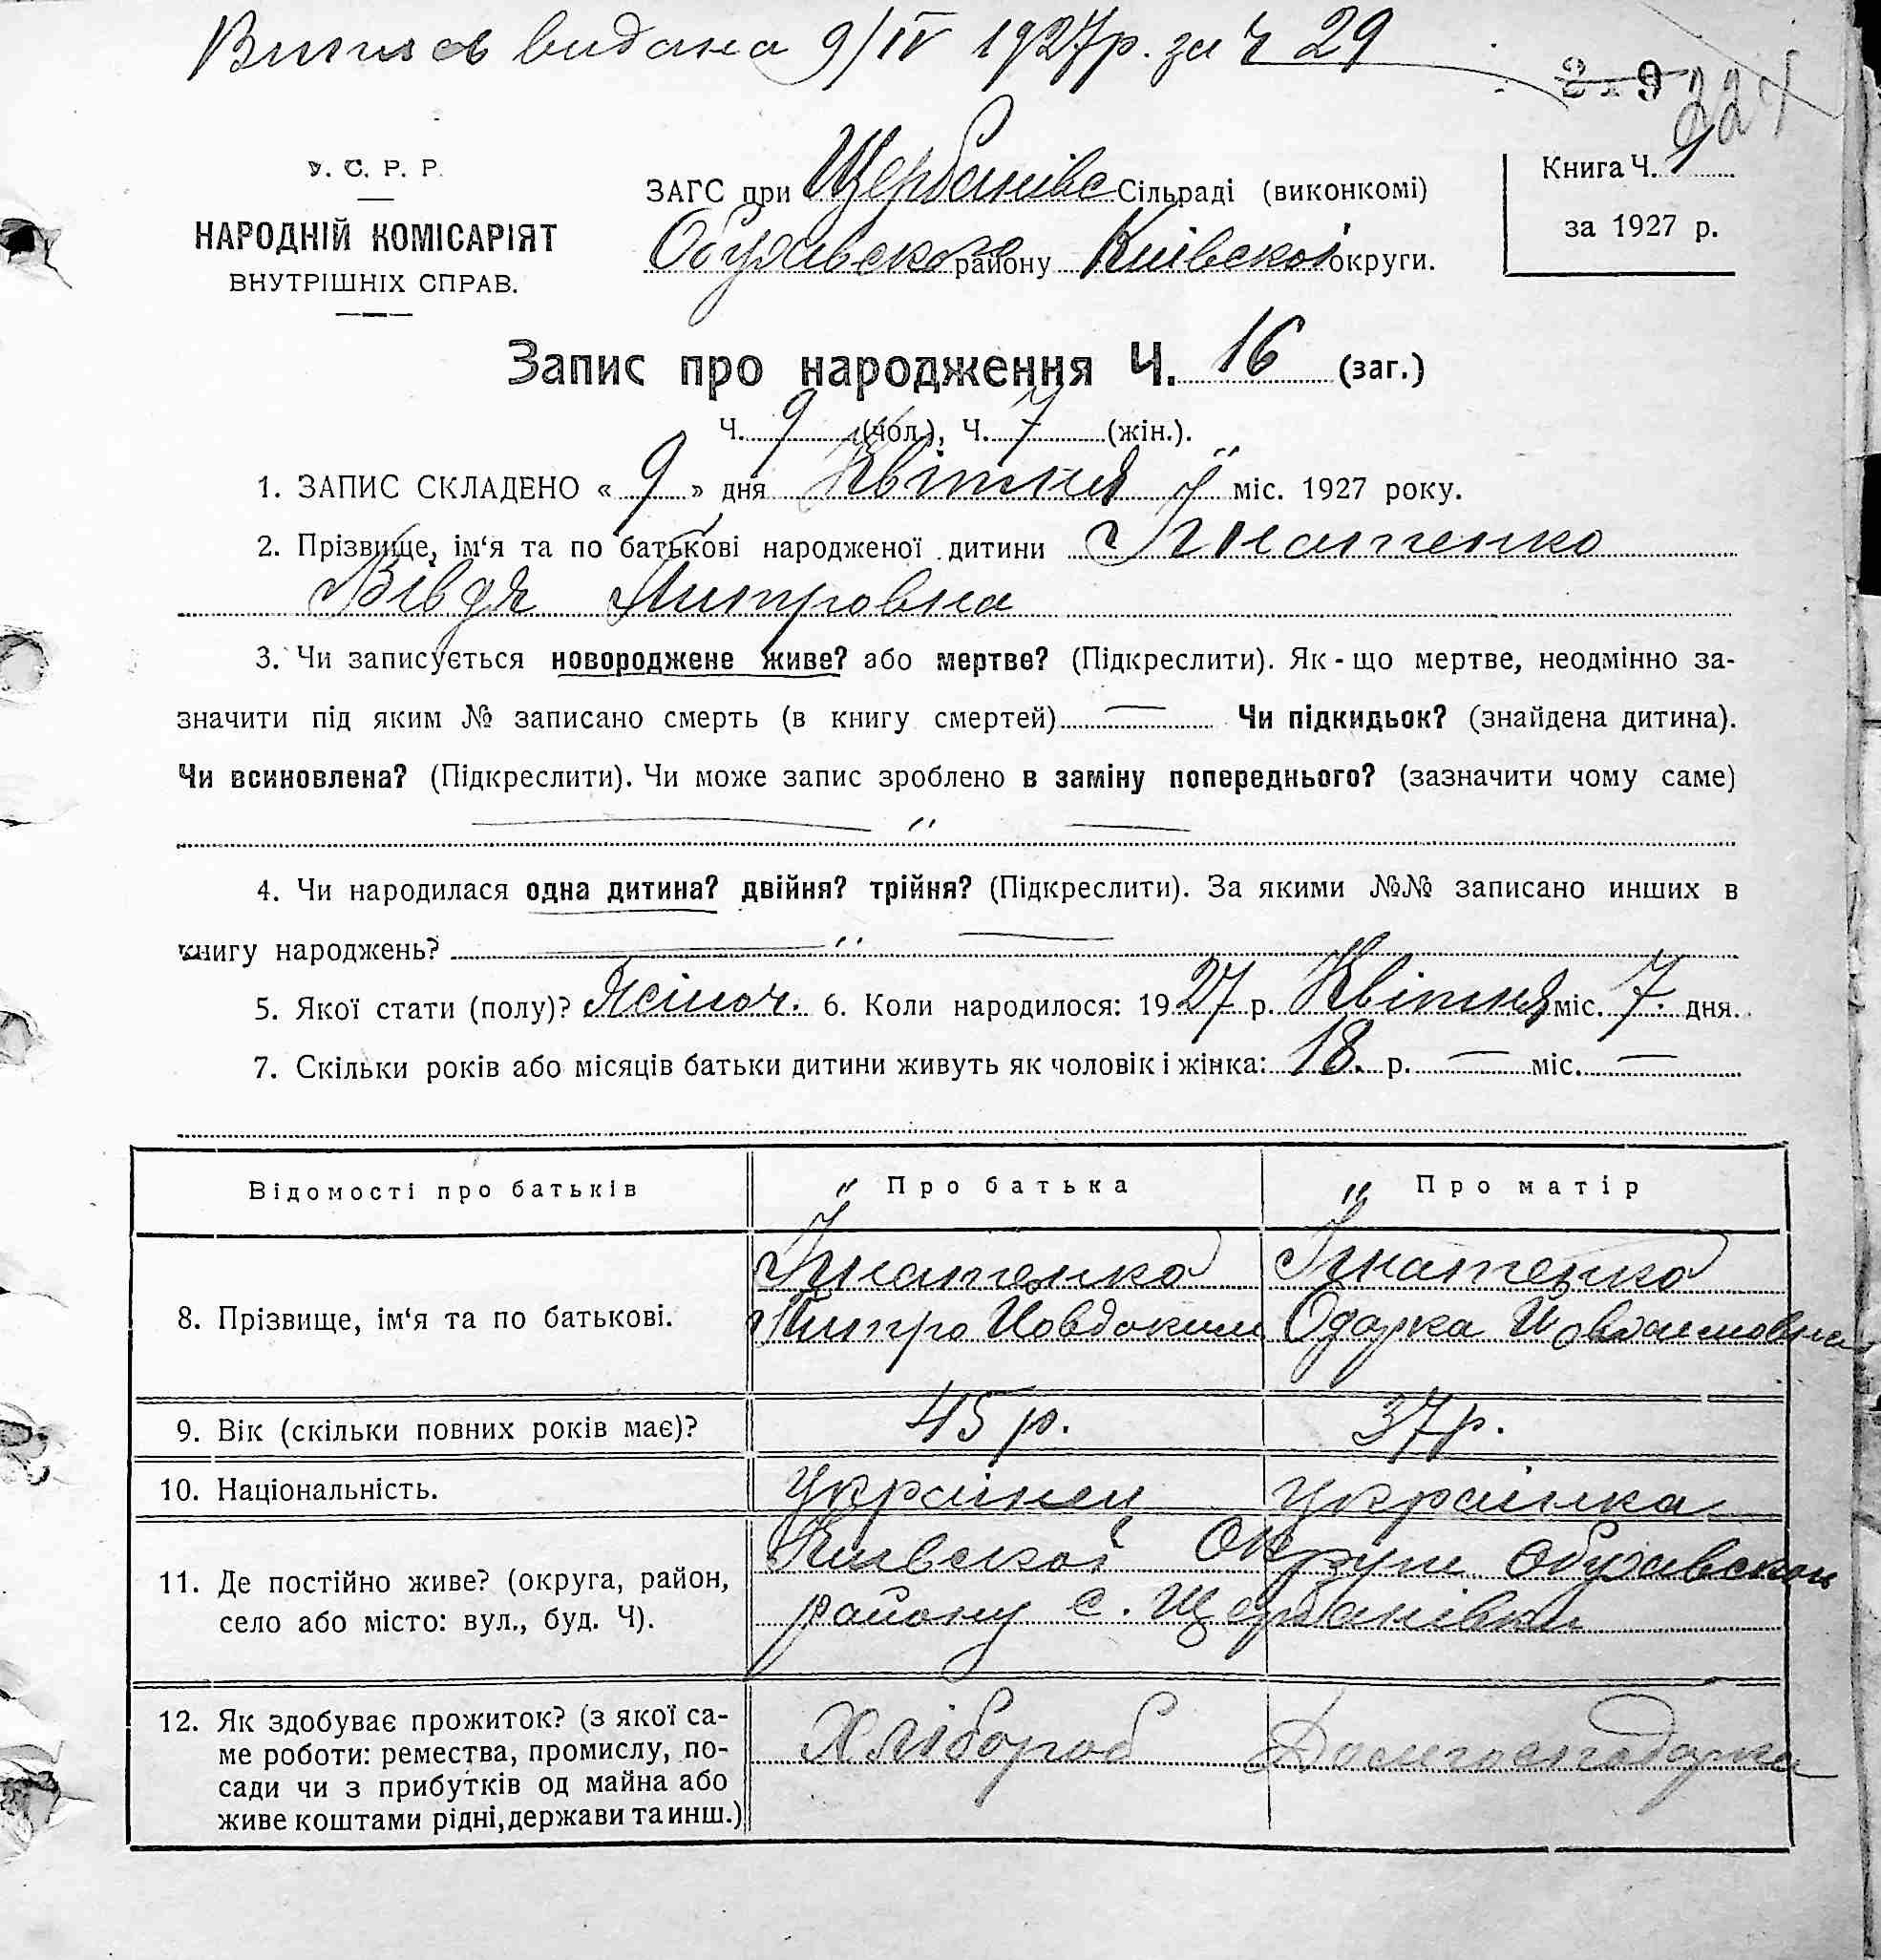 Випись видана 9/IV 1927р. за ч 29
221
У. С. Р. Р.
НАРОДНІЙ КОМІСАРІЯТ
ВНУТРІШНІХ СПРАВ.
ЗАГС при Щербанівс Сільраді (виконкомі)
Обухівського району Київської округи.
Книга Ч. 1
за 1927 р.
Запис про народження Ч. 16 (заг.)
Ч. 9 (чол.), Ч. 7 (жін.).
1. ЗАПИС СКЛАДЕНО « 9 » дня Квітня міс. 1927 року.
2. Прізвище, ім‘я та по батькові народженої дитини Ігнатенко
Вівдя Дмитровна
3. Чи записується новороджене живе? або мертве? (Підкреслити). Як - що мертве, неодмінно за-
значити під яким № записано смерть (в книгу смертей) — Чи підкидьок? (знайдена дитина).
Чи всиновлена? (Підкреслити). Чи може запис зроблено в заміну попереднього? (зазначити чому саме)
— " —
4. Чи народилася одна дитина? двійня? трійня? (Підкреслити). За якими №№ записано инших в
книгу народжень? — " —
5. Якої стати (полу)? Жіноч. 6. Коли народилося: 1927 р. Квітня міс. 7. дня.
7. Скільки років або місяців батьки дитини живуть як чоловік і жінка: 18. р. — міс. —
Відомості про батьків Про батька Про матір
8. Прізвище, ім‘я та по батькові.
Ігнатенко Ігнатенко
Дмитро Йовдоким Одарка
9. Вік (скільки повних років має)? 45 р. 37 р.
10. Національність. Українец Українка
11. Де постійно живе? (округа, район,
село або місто: вул., буд. Ч).
Київської Округи Обухівськ
району с. Щербанівки
12. Як здобуває прожиток? (з якої са-
ме роботи: ремества, промислу, по-
сади чи з прибутків од майна або
живе коштами рідні, держави та инш.)
Хлібороб Домгосподарка